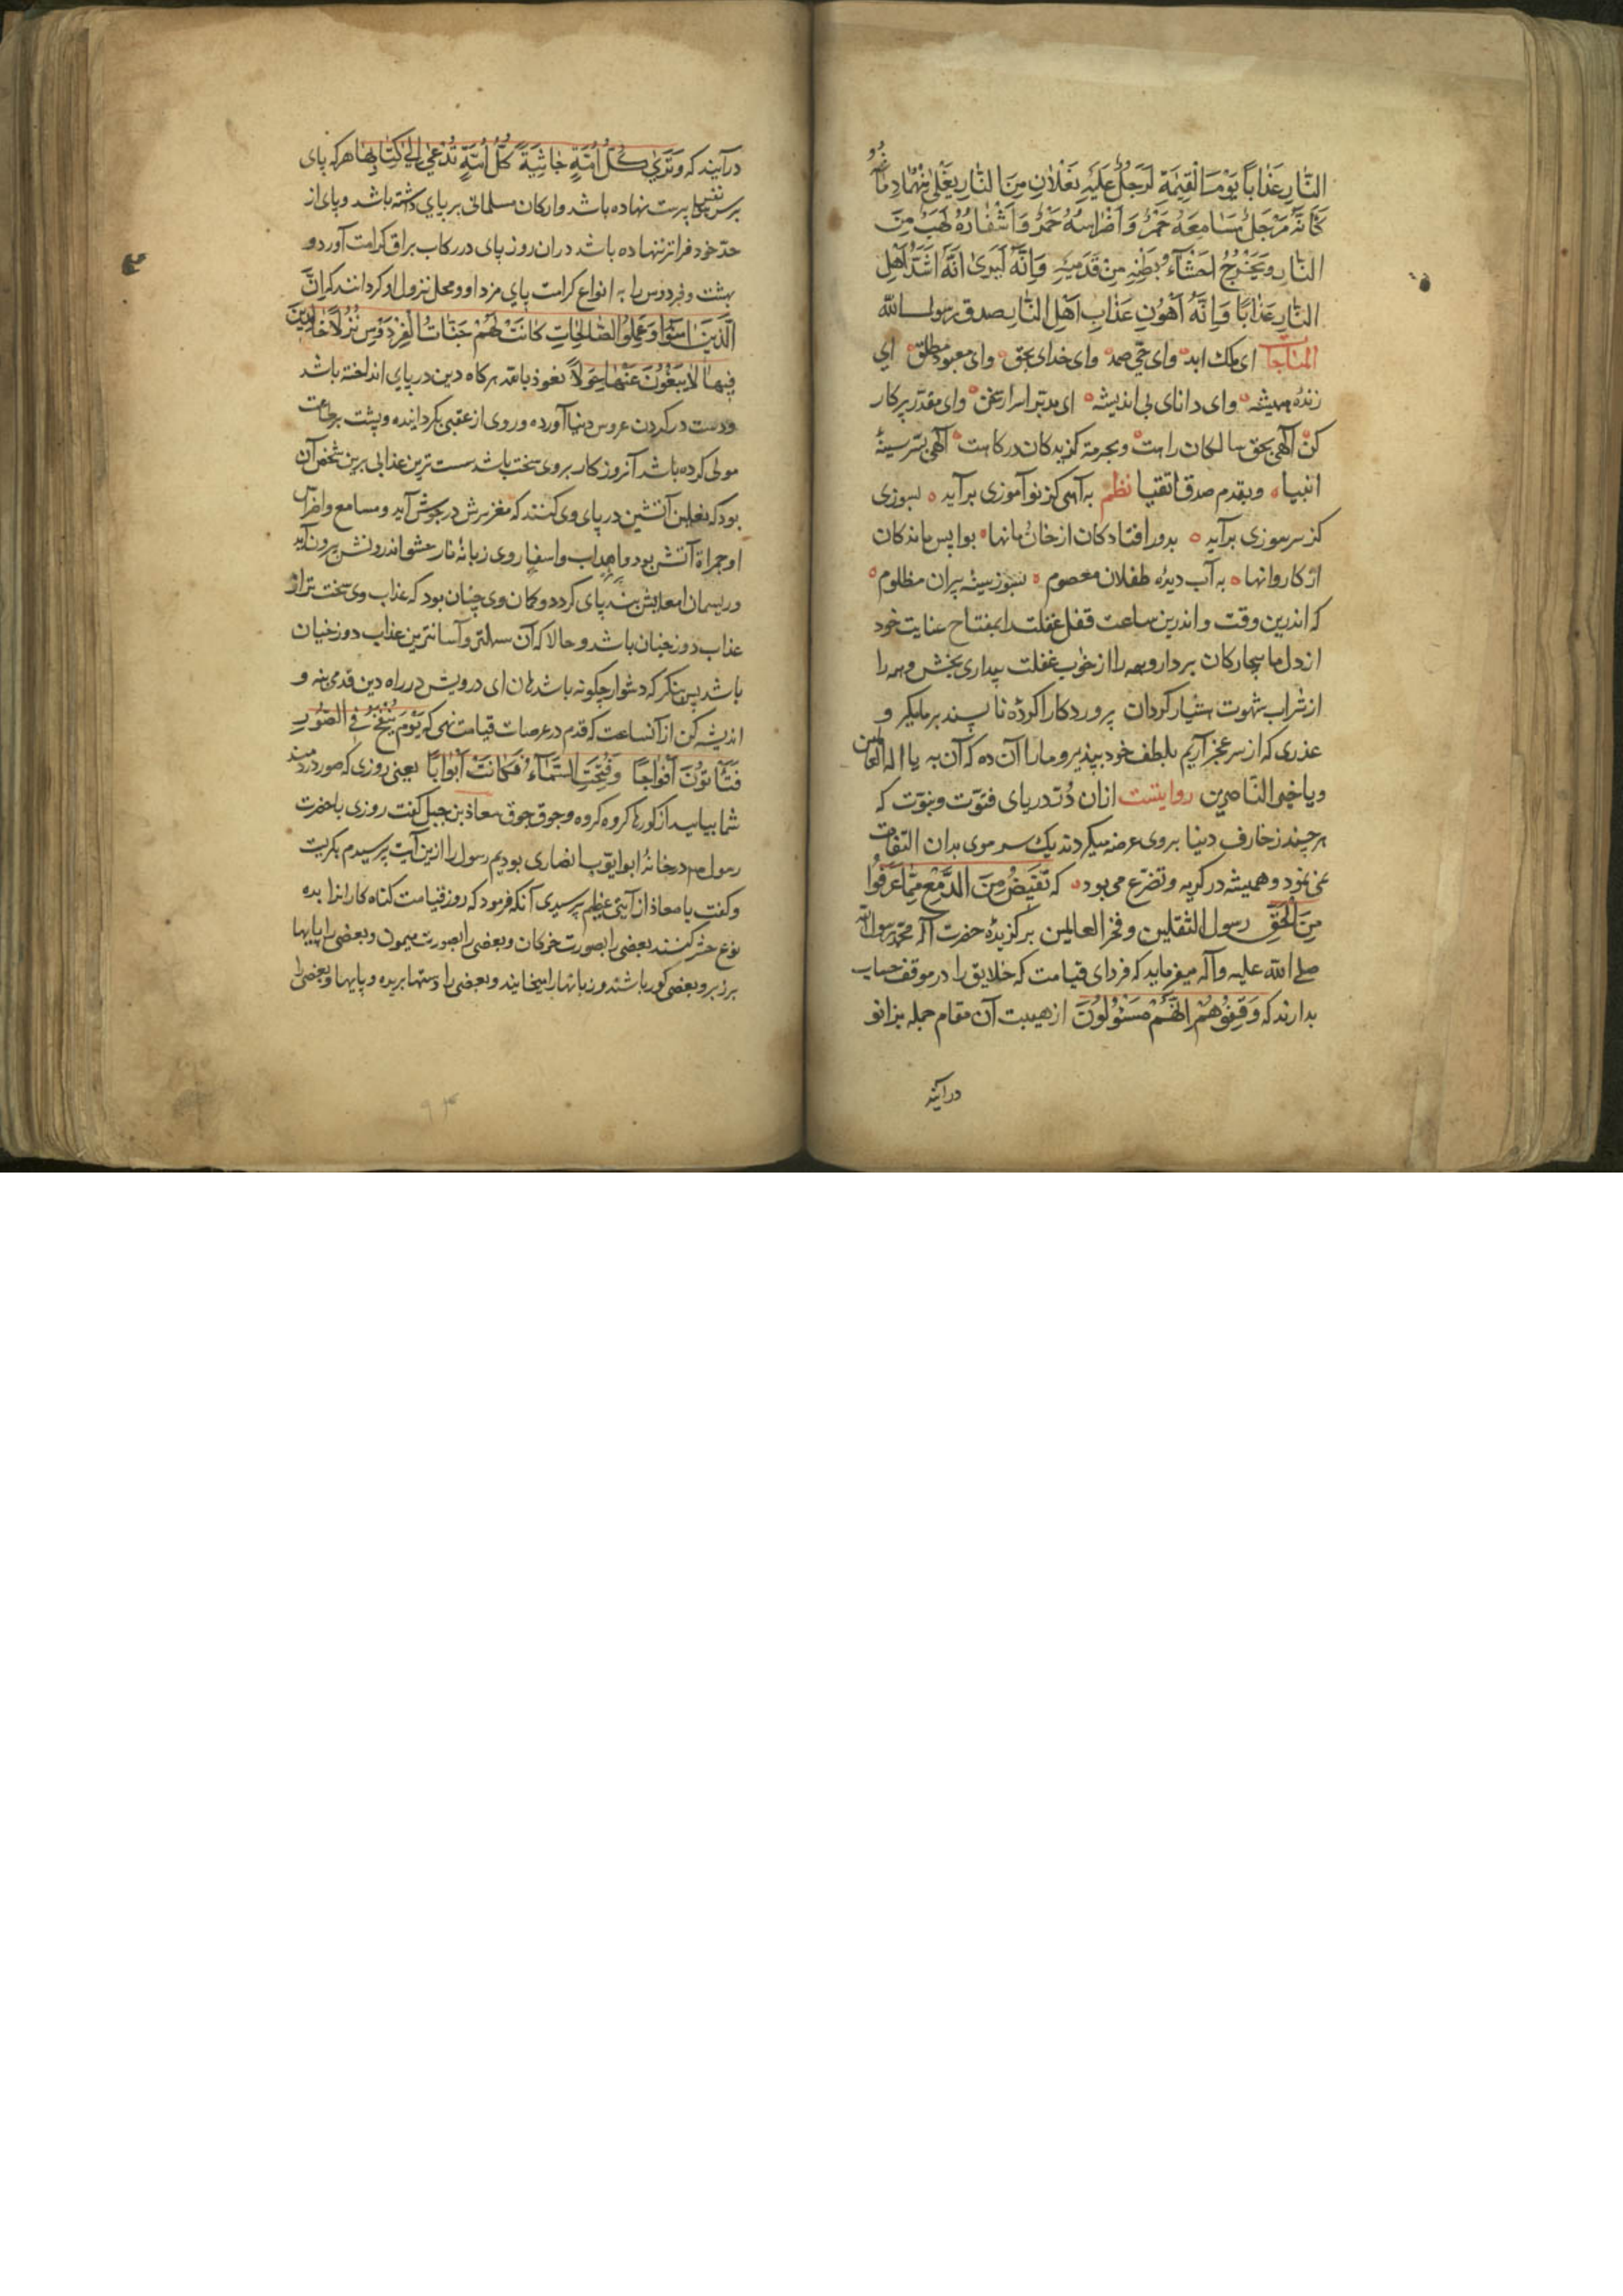 النَّارِ عَذَابًا يَوْمَ الْقِيٰمَةِ لَرَجُلٌ عَلَيْهِ نَعْلَانِ مِنَ النَّارِ يَغْلِي مِنْهُمَا دِمَاغُهُ
كَأَنَّهُ مِرْجَلٌ مَسَامِعُهُ جَمْرٌ وَأَضْرَاسُهُ جَمْرٌ وَأَشْفَارُهُ لَهَبٌ مِنَ
النَّارِ وَيَخْرُجُ أَحْشَآءُ بَطْنِهِ مِنْ قَدَمَيْهِ وَإِنَّهُ لَيَرَى أَنَّهُ أَشَدُّ أَهْلِ
النَّارِ عَذَابًا وَإِنَّهُ أَهْوَنِ عَذَابِ أَهْلِ النَّارِ صدق رسول الله
المناجات ای ملک ابد وای حی صمد وای خدای بحق وای معبود مطلق ای
زندهٔ همیشه وای دانای بی اندیشه ای مدبر اسرار وای مقدر پرکار
کن الهی بحق سالکان راهت وبحرمة کزیدکان درکاهت الهی بسر سینهٔ
انبیا وبقدم صدق اتقیا نظم به آهی کز نوآموزی برآید بسوزی
کز سر سوزی برآید بدور افتادکان از خان ومانها بواپس ماندکان
از کاروانها به آب دیدهٔ طفلان معصوم بسوز سینهٔ پیران مظلوم
که اندرین وقت واندرین ساعت قفل غفلت را بمفتاح عنایت خود
از دل ما بیچارکان بردار وهمه را از خواب غفلت بیداری بخش وهمه را
از شراب شهوت هشیار کردان پروردکارا کردهٔ ناپسند بر ما مکیر و
عذری که از سر عجز آریم بلطف خود بپذیر وما را آن ده که آن به یا اله العالمین
ویا خیر الناصرین روایتست ازان در دریای فتوت ونبوت که
هر چند زخارف دنیا بروی عرضه میکردند یک سر موی بدان التفات
نمی نمود وهمیشه در کریه وتضرع می بود که تَفِيضُ مِنَ الدَّمْعِ مِمَّا عَرَفُوا
مِنَ الْحَقِّ رسول الثقلین وفخر العالمین برکزیدهٔ حضرت اله محمد رسول الله
صلی الله علیه وآله میفرماید که فردای قیامت که خلایق را در موقف حساب
بدارند که وَقِفُوهُمْ إِنَّهُمْ مَسْئُولُونَ از هیبت آن مقام جمله بزانو
درآیند
درآیند که وَتَرَى كُلَّ أُمَّةٍ جَاثِيَةً كُلُّ أُمَّةٍ تُدْعَى إِلَى كِتَابِهَا هر که پای
بر سر نفس پرست نهاده باشد وارکان مسلمانی بر پای داشته باشد وپای از
حد خود فراتر ننهاده باشد دران روز پای در رکاب براق کرامت آورد و
بهشت وفردوس را به انواع کرامت پای مزد او ومحل نزول او کردانند که اِنَّ
الَّذِينَ اٰمَنُوا وَعَمِلُوا الصَّالِحَاتِ كَانَتْ لَهُمْ جَنَّاتُ الْفِرْدَوْسِ نُزُلًا خَالِدِينَ
فِيهَا لَا يَبْغُونَ عَنْهَا حِوَلًا نعوذ بالله هرکاه دین در پای انداخته باشد
ودست در کردن عروس دنیا آورده وروی از عقبی بکردانیده وپشت بر طاعت
مولی کرده باشد آنروز کار بروی سخت باشد سست ترین عذابی برین شخص آن
بود که نعلین آتشین در پای وی کنند که مغز سرش در جوش آید ومسامع واضراس
او جمرات آتش بود واهداب واسفار وی زبانهٔ نار حشو اندرونش بیرون آید
وریسمان امعایش بند پای کردد وکمان وی چنان بود که عذاب وی سخت تر از
عذاب دوزخیان باشد وحالا که آن سهلتر وآسانترین عذاب دوزخیان
باشد پس بنکر که دشوار چکونه باشد هان ای درویش در راه دین قدمی بنه و
اندیشه کن از آنساعت که قدم در عرصات قیامت نهی که يَوْمَ يُنْفَخُ فِي الصُّورِ
فَتَأْتُونَ أَفْوَاجًا وَفُتِحَتِ السَّمَآءُ فَكَانَتْ أَبْوَابًا یعنی روزی که صور دردمند
شما بیایید از کورها کروه کروه وجوق جوق معاذ بن جبل کفت روزی باحضرت
رسول در خانهٔ ابوایوب انصاری بودیم رسول را ازین آیت پرسیدم بکریست
وکفت یا معاذ از آیتی عظیم پرسیدی آنکه فرمود که روز قیامت کناه کارانرا بده
نوع حشر کنند بعضی را بصورت خوکان وبعضی را بصورت میمون وبعضی را پایها
بر زبر وبعضی کور باشند وزبانها را میخایند وبعضی را دستها بریده وپایها وبعضی را